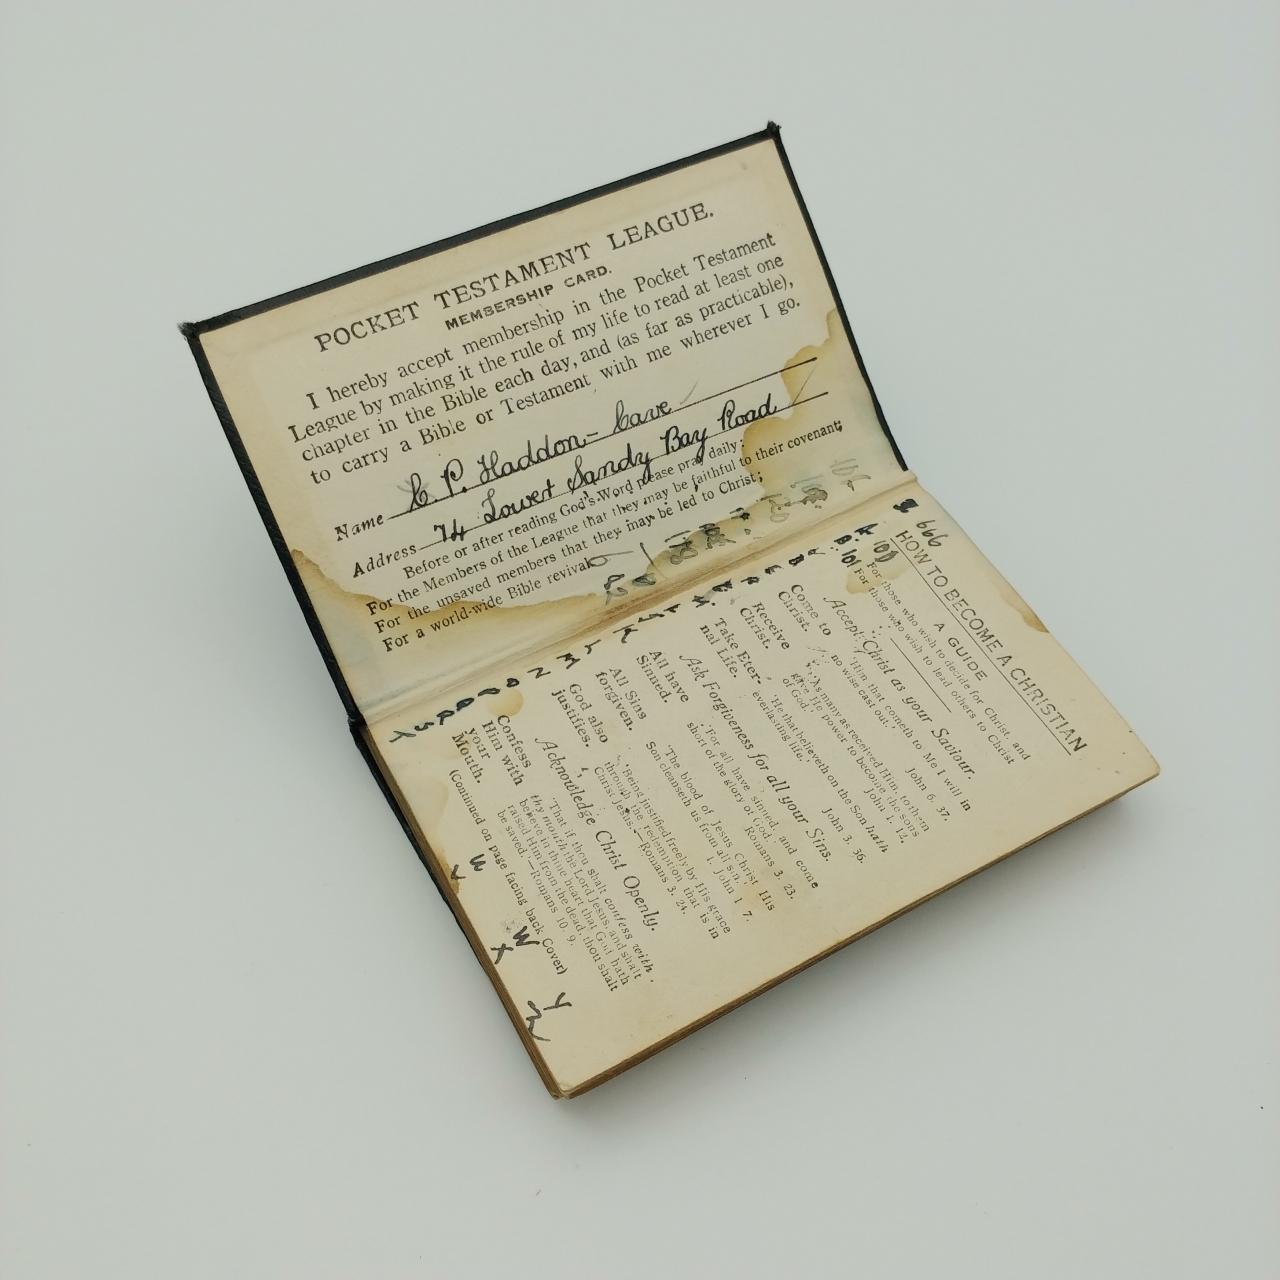 POCKET TESTAMENT LEAGUE.
MEMBERSHIP CARD.
I hereby accept membership in the Pocket Testament
League by making it the rule of my life to read at least one
chapter in the Bible each day, and (as far as practicable),
to carry a Bible or Testament with me wherever I go.
Name C. P. Haddon-Cave
Address 74 Lower Sandy Bay Road
Before or after reading God's Word please pray daily:
For the Members of the League that they may be faithful to their covenant;
For the unsaved members that they may be led to Christ;
For a world-wide Bible revival
666
HOW TO BECOME A CHRISTIAN
A GUIDE
A 100
For those who wish to decide for Christ, and
B. 101
For those who wish to lead others to Christ
Accept Christ as your Saviour.
Come to Christ.
"Him that cometh to Me I will in
no wise cast out." John 6. 37.
Receive Christ.
"As many as received Him, to them
gave He power to become the sons
of God." John 1. 12.
Take Eternal Life.
"He that believeth on the Son hath
everlasting life." John 3. 36.
Ask Forgiveness for all your Sins.
All have Sinned.
"For all have sinned, and come
short of the glory of God." Romans 3. 23.
All Sins forgiven.
"The blood of Jesus Christ His
Son cleanseth us from all sin." 1. John 1 7.
God also justifies.
"Being justified freely by His grace
through the redemption that is in
Christ Jesus."—Romans 3. 24.
Acknowledge Christ Openly.
Confess Him with your Mouth.
"That if thou shalt confess with
thy mouth the Lord Jesus, and shalt
believe in thine heart that God hath
raised Him from the dead, thou shalt
be saved."—Romans 10. 9.
(Continued on page facing back Cover)
M
N
O
P
W
X
Y